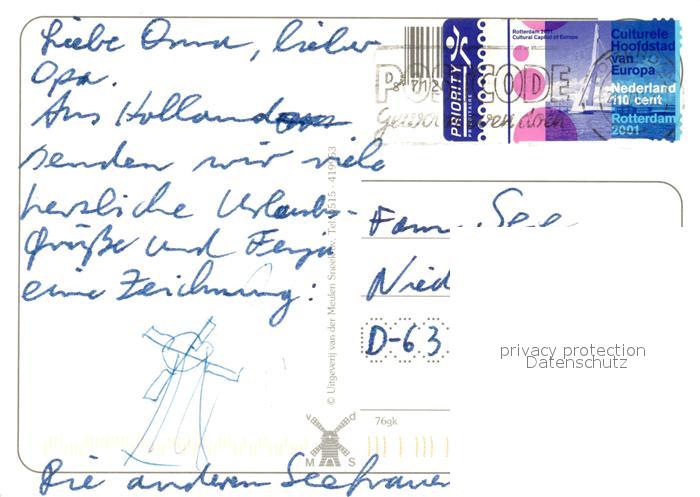 Liebe Oma, lieber
Opa.
Aus Holland
senden wir viele
herzliche Urlaubs-
grüße und Fenja
eine Zeichnung:
Die anderen Seefrauen
Rotterdam 2001
Cultural Capital of Europe
Culturele
Hoofdstad
van
Europa
Nederland
110 cent
Rotterdam
2001
PRIORITY
PRIORITAIRE
POSTCODE
© Uitgeverij van der Meulen Sneek bv, Tel. 0515 - 419023
Fam. See
Nied
D-63
privacy protection
Datenschutz
76gk
v d
M S